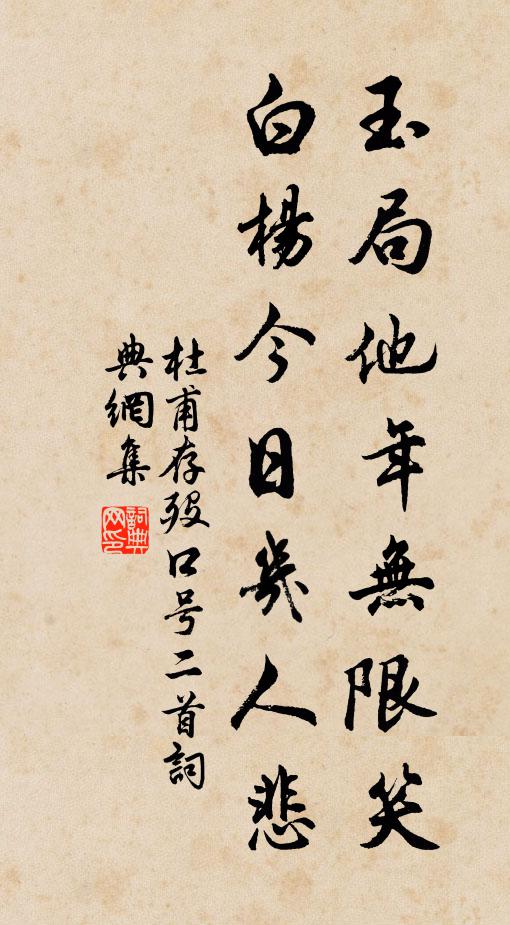 玉局他年無限笑
白楊今日幾人悲
杜甫存殁口号二首詞
典網集
詞典
网印